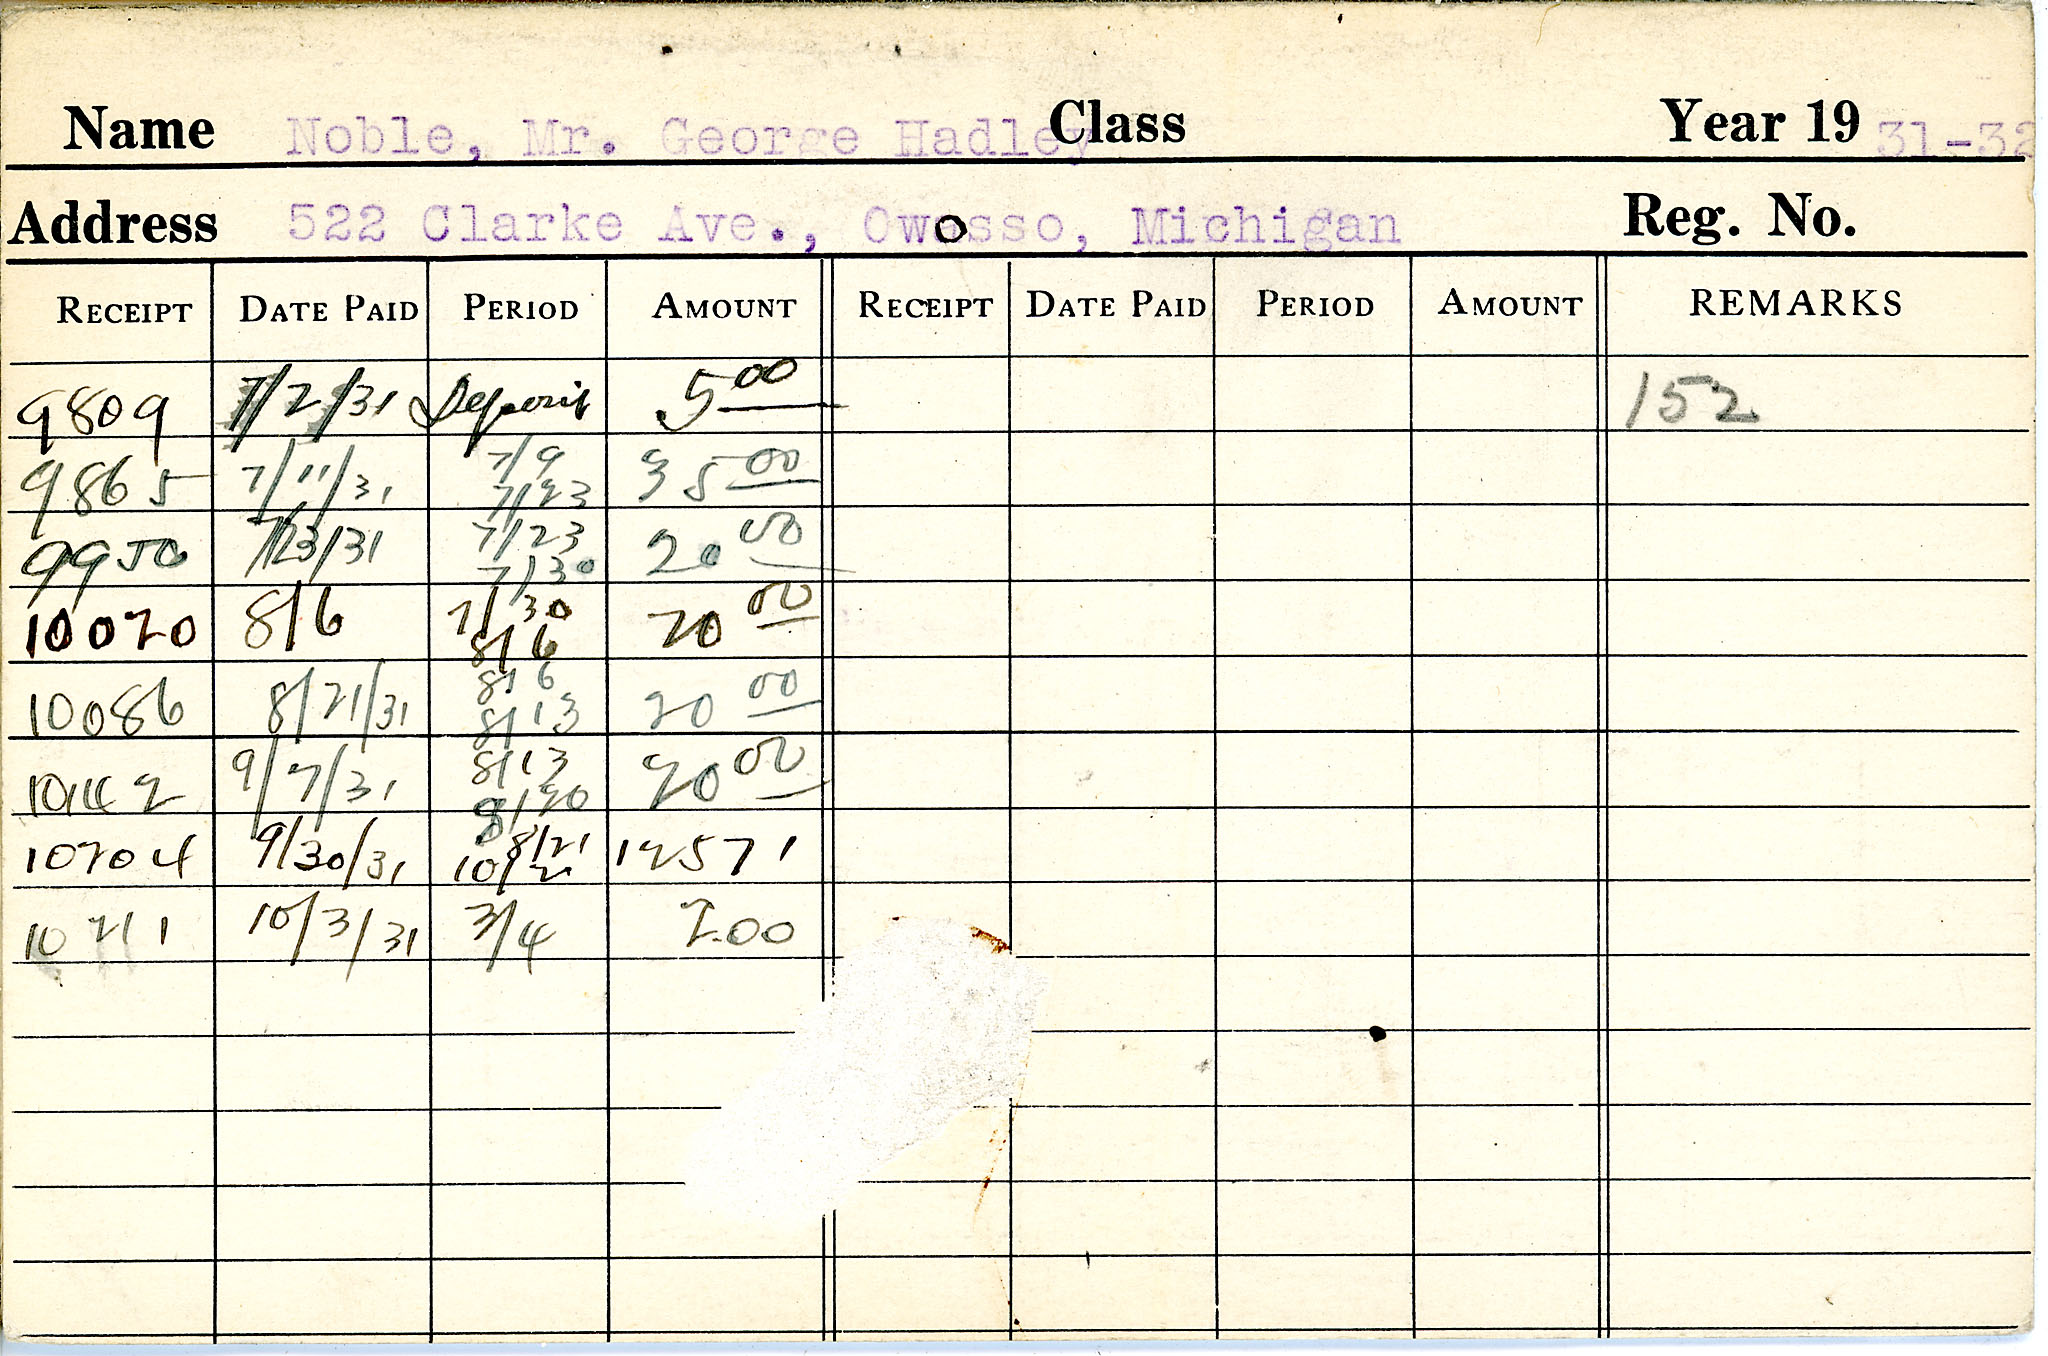 Name Noble, Mr. George Hadley Class Year 19 31-32
Address 522 Clarke Ave., Owosso, Michigan Reg. No.
RECEIPT DATE PAID PERIOD AMOUNT RECEIPT DATE PAID PERIOD AMOUNT REMARKS
9809 7/2/31 Deposit 5 00 152
9865 7/11/31 7/9 7/23 35 00
9950 7/23/31 7/23 7/30 20 00
10020 8/6 7/30 8/6 20 00
10086 8/21/31 8/6 8/13 20 00
10142 9/7/31 8/13 8/20 20 00
10204 9/30/31 8/21 10/2 12571
10211 10/3/31 3/4 2.00